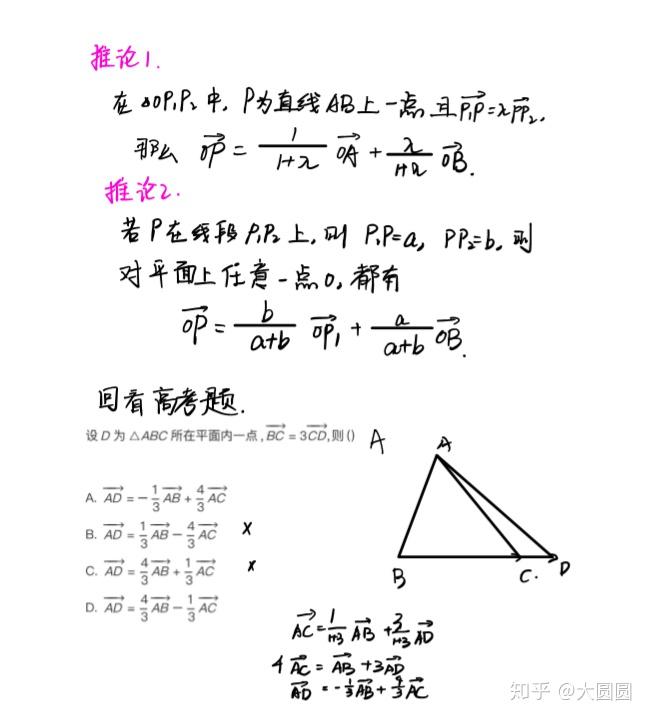 推论1.
在△OP₁P₂中, P为直线AB上一点且$\overrightarrow{P_1P}=λ\overrightarrow{PP_2}$,
那么 $\overrightarrow{OP}=\frac{1}{1+λ}\overrightarrow{OA}+\frac{λ}{1+λ}\overrightarrow{OB}$.
推论2.
若P在线段P₁P₂上,则 P₁P=a, PP₂=b, 则
对平面上任意一点O, 都有
$\overrightarrow{OP}=\frac{b}{a+b}\overrightarrow{OP_1}+\frac{a}{a+b}\overrightarrow{OB}$.
回看高考题.
设 D 为 △ABC 所在平面内一点,$\overrightarrow{BC}=3\overrightarrow{CD}$,则() A
A. $\overrightarrow{AD}=-\frac{1}{3}\overrightarrow{AB}+\frac{4}{3}\overrightarrow{AC}$
B. $\overrightarrow{AD}=\frac{1}{3}\overrightarrow{AB}-\frac{4}{3}\overrightarrow{AC}$ x
C. $\overrightarrow{AD}=\frac{4}{3}\overrightarrow{AB}+\frac{1}{3}\overrightarrow{AC}$ x
D. $\overrightarrow{AD}=\frac{4}{3}\overrightarrow{AB}-\frac{1}{3}\overrightarrow{AC}$
A
B C. D
$\overrightarrow{AC}=\frac{1}{1+3}\overrightarrow{AB}+\frac{3}{1+3}\overrightarrow{AD}$
$4\overrightarrow{AC}=\overrightarrow{AB}+3\overrightarrow{AD}$
$\overrightarrow{AD}=-\frac{1}{3}\overrightarrow{AB}+\frac{4}{3}\overrightarrow{AC}$
知乎 @大圆圆